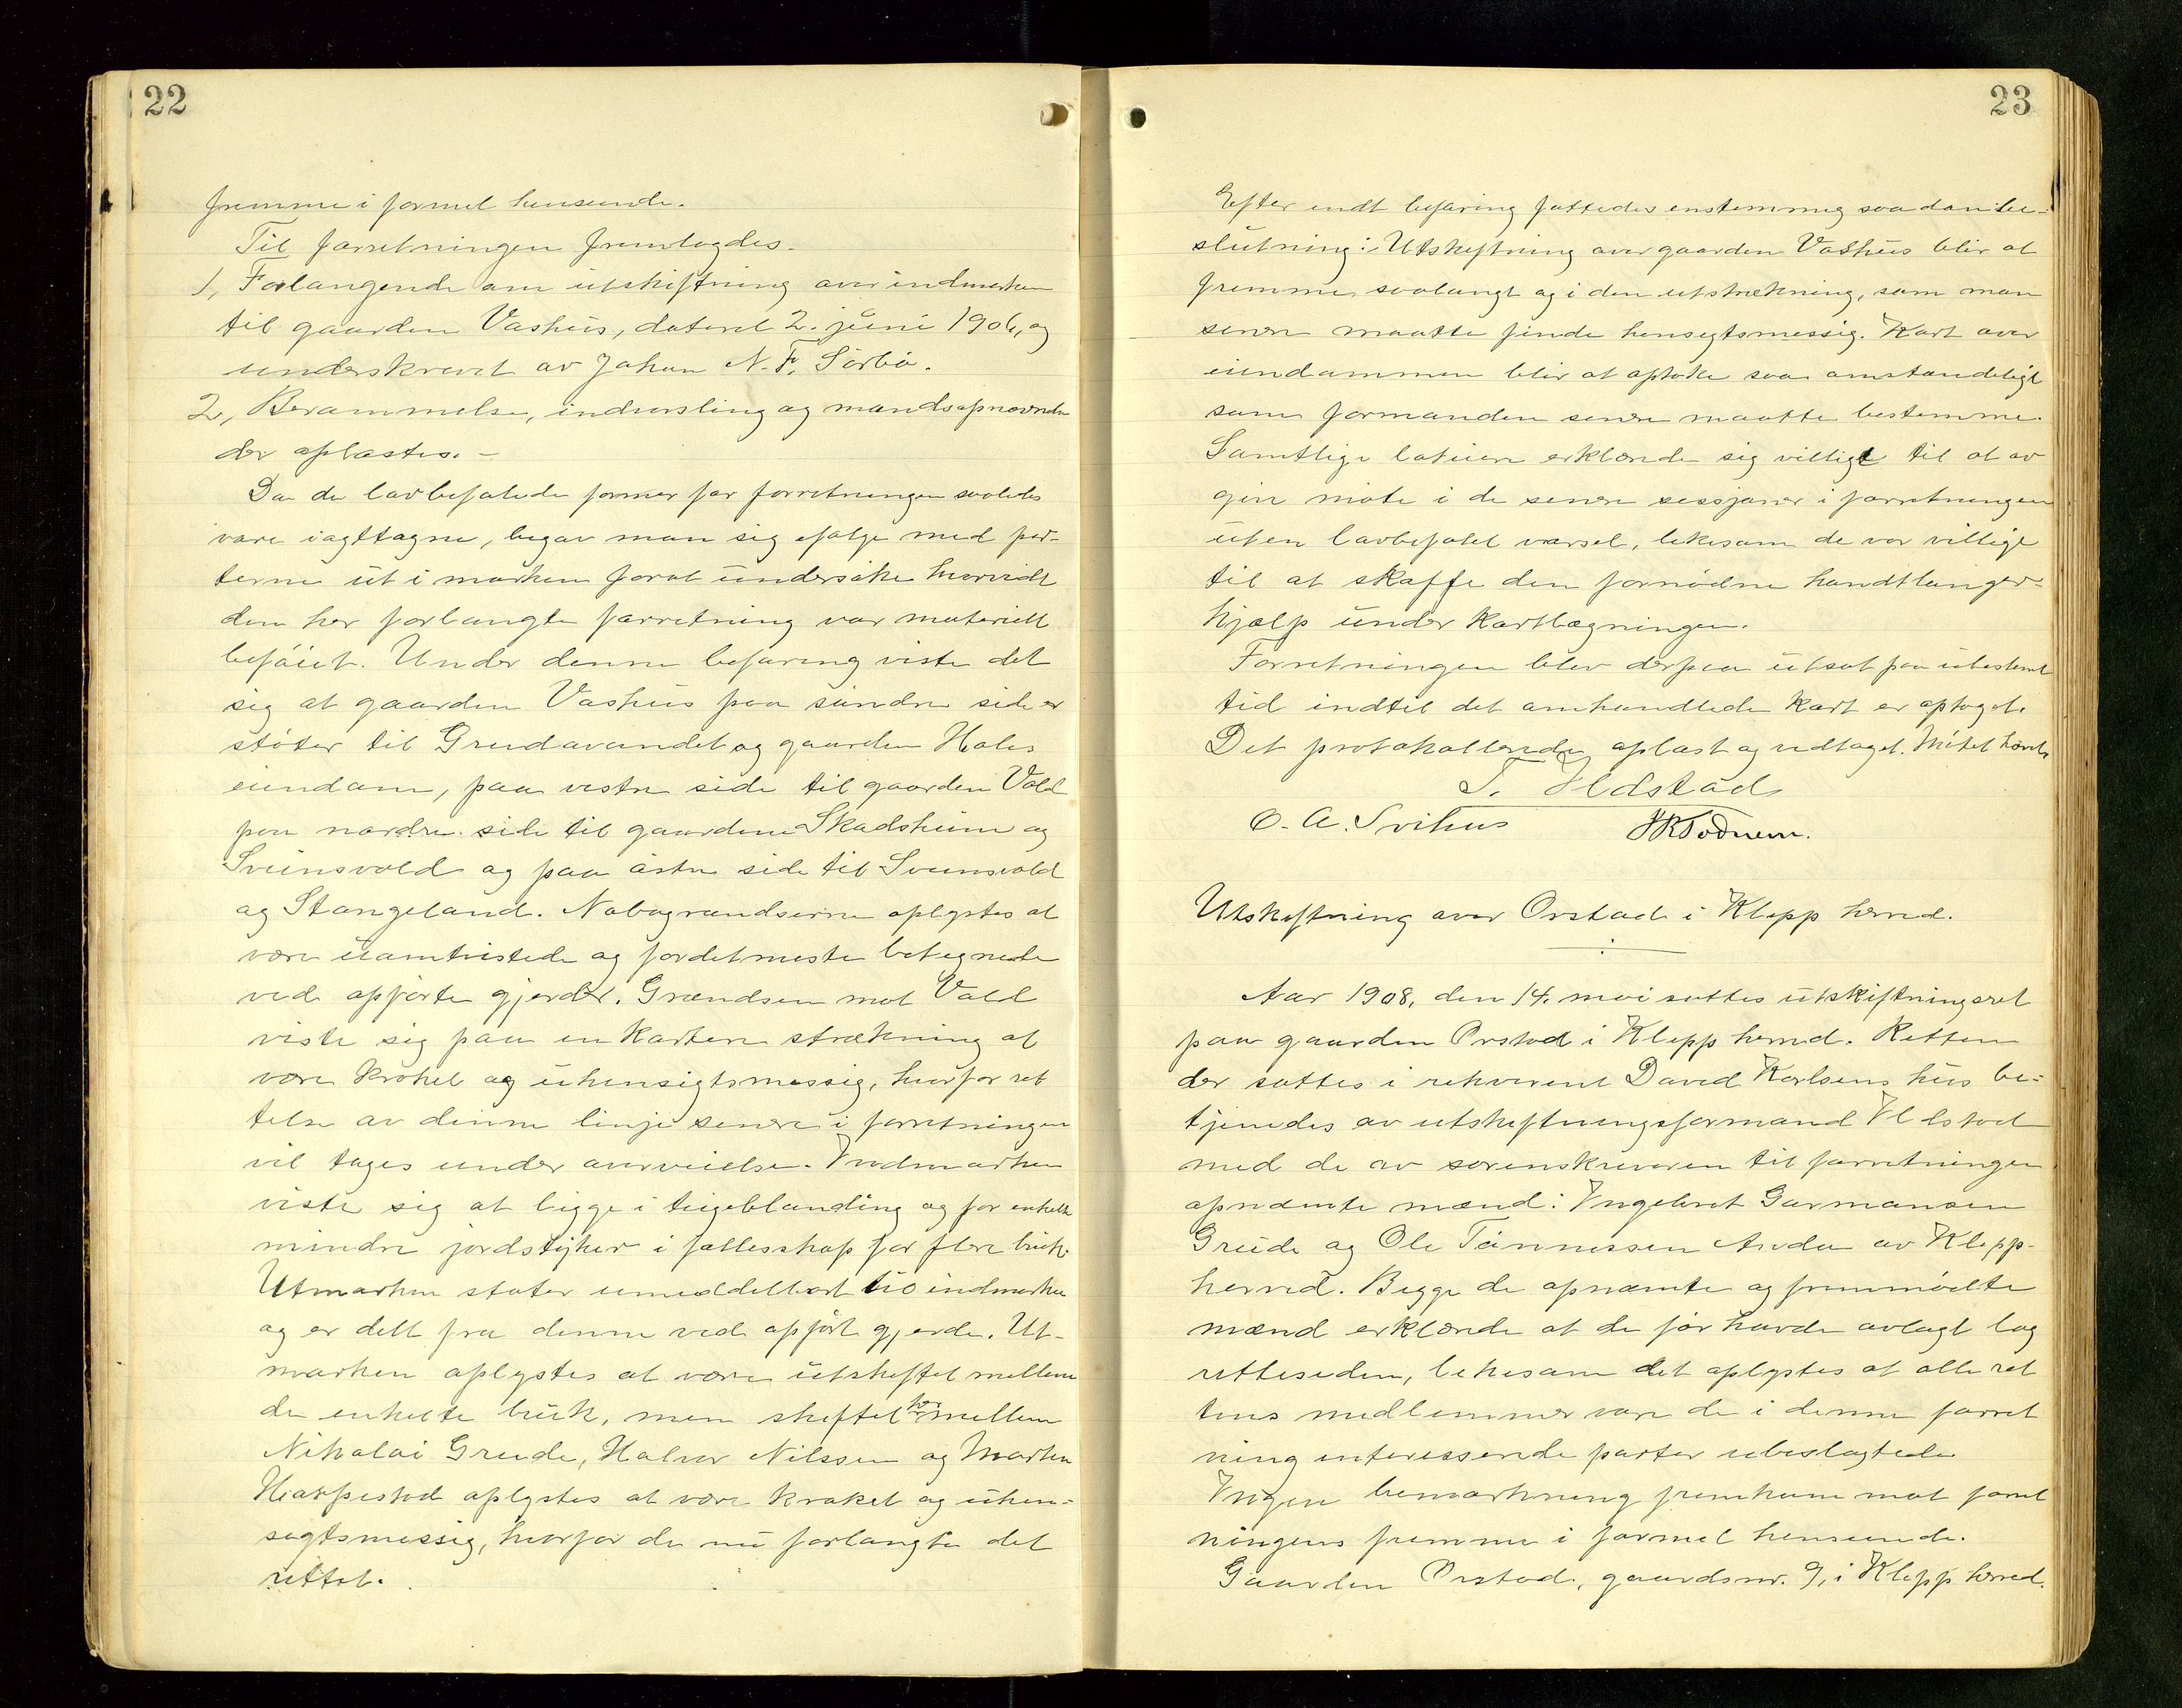 22
fremme i formel henseende.
Til forretningen fremlagdes.
1, Forlangende om utskiftning over indmarken
til gaarden Vashus, dateret 2. juni 1906, og
underskrevet av Johan N. F. Sörbö.
2, Berammelse, indvarsling og mandsopnævnelse
der oplæstes. -
Da de lovbefalede former for forretningen saaledes
vare iagttagne, begav man sig ifølge med par-
terne ut i marken forat undersøke hvorvidt
den her forlangte forretning var materielt
beføiet. Under denne befaring viste det
sig at gaarden Vashus paa søndre side er
støter til Grudavandet og gaarden Hales
eiendom, paa vestre side til gaarden Vold
paa nordre side til gaardene Skadsheim og
Sveinsvold og paa östre side til Sveinsvold
og Stangeland. Nabogrændserne oplystes at
være uomtvistede og fordetmeste betegnede
ved opførte gjerder. Grændsen mot Vold
viste sig paa en kortere strækning at
være kroket og uhensigtsmessig, hvorfor ret
telse av denne linje senere i forretningen
vil tages under overveielse. Indmarken
viste sig at ligge i teigeblanding og for enkelte
mindre jordstyker i fællesskap for flere bruk.
Utmarken støter umiddelbart til indmarken
og er delt fra denne ved opført gjerde. Ut-
marken oplystes at være utskiftet mellem
de enkelte bruk, men skiftet her mellem
Nikolai Grude, Halvor Nilssen og Marken
Harpestad oplystes at være kroket og uhen-
sigtsmessig, hvorfor de nu forlangte det
rettet.
23
Efter endt befaring fattedes enstemmig saadan be-
slutning: Utskiftning over gaarden Vashus blir at
fremme saalangt og i den utstrekning, som man
senere maatte finde hensigtsmessig. Kart over
eiendommen blir at optake saa omstændeligt
som formanden senere maatte bestemme.
Samtlige lotseiere erklærede sig villige til at av
give møte i de senere sessjoner i forretningen
uten lovbefalet varsel, likesom de var villige
til at skaffe den fornødne handtlanger-
hjælp under kartlægningen.
Forretningen blev derpaa utsat paa ubestemt
tid indtil det omhandlede kart er optaget.
Det protokollerede oplæst og vedtaget. Møtet hævet.
T. Ildstad
O. A. Svihus HKTodnem.
Utskiftning over Orstad i Klepp herred.
Aar 1908, den 14. mai sattes utskiftningsret
paa gaarden Orstad i Klepp herred. Retten
der sattes i rekvirent David Karlsens hus be-
tjenedes av utskiftningsformand Ildstad
med de av sorenskriveren til forretningen
opnævnte mænd: Ingebret Garmansen
Grude og Ole Tønnessen Anda av Klepp-
herred. Begge de opnævnte og fremmødte
mænd erklærede at de før havde avlagt lag
retteseden, likesom det oplystes at alle ret
tens medlemmer vare de i denne forret
ning interesserede parter ubeslagtede
Ingen bemerkning fremkom mot forret
ningens fremme i formel henseende.
Gaarden Orstad, gaardsnr. 9, i Klepp herred.